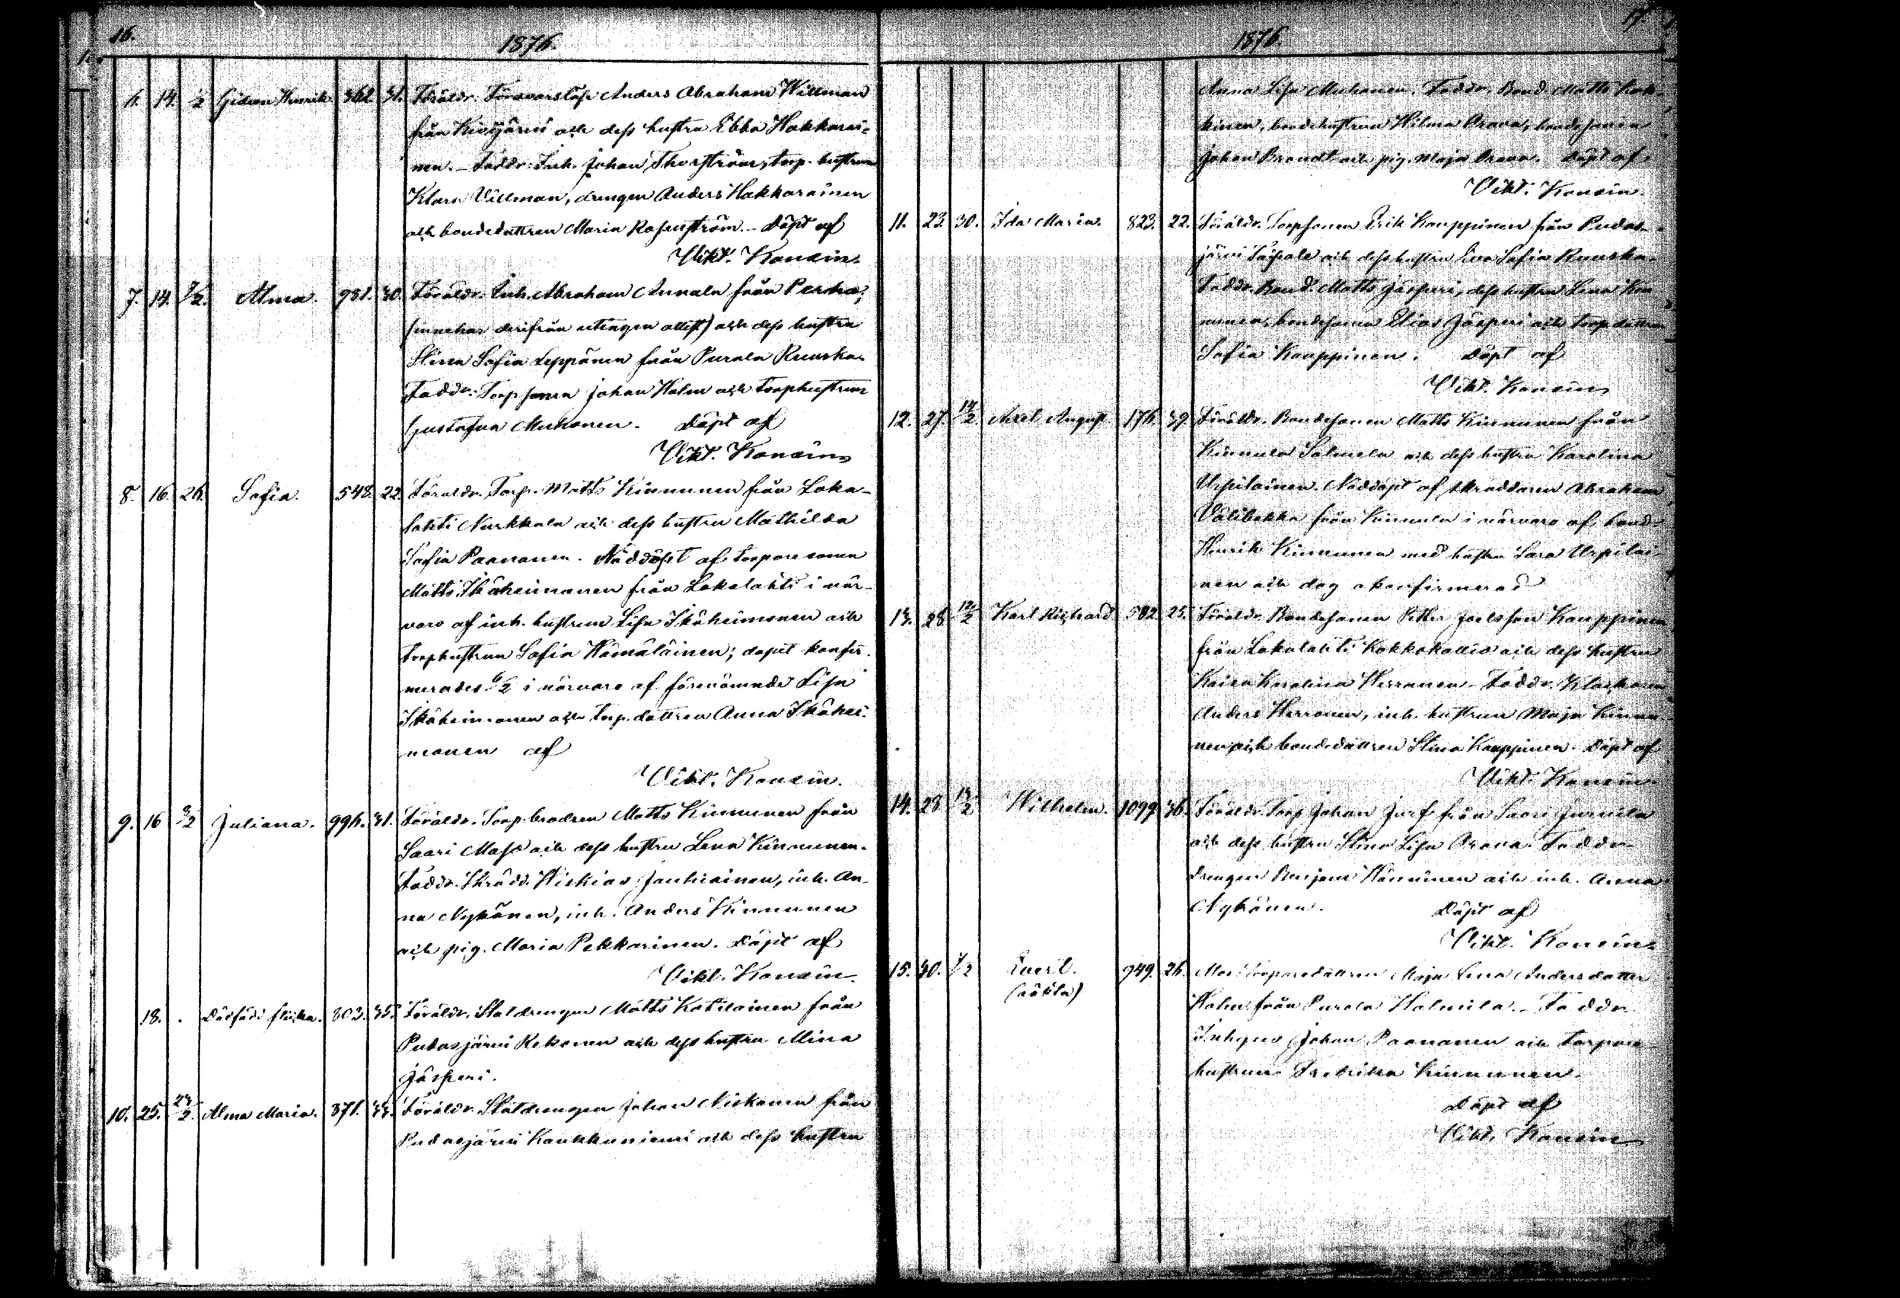 16.
1876.
6. 14. 1/2 Gideon Henrik. 362. 31. Föräldr. Försvarslöse Anders Abraham Willman
från Kivijärvi och dess hustru Ebba Hakkarai-
nen. – Faddr. Inh. Johan Thorström, torp. hustrun
Klara Villman, drengen Anders Hakkarainen
och bondedottren Maria Rosenström. – Döpt af
Vikt. Konsin.
7. 14. 7/2 Alma. 981. 30. Föräldr. Inh. Abraham Annala från Perho,
(innehar derifrån uttagen attest) och dess hustru
Stina Sofia Leppänen från Purala Ruuska.
Faddr. Torpsonen Johan Holm och torphustrun
Gustafva Muhonen. Döpt af
Vikt. Konsin
8. 16. 26. Sofia. 548. 22. Föräldr. Torp. Matts Kinnunen från Loka-
lahti Nurkkala och dess hustru Mathilda
Sofia Paananen. Nöddöpt af torparesonen
Matts Ikäheimonen från Lokalahti i när-
varo af inh. hustrun Lisa Ikäheimonen och
torphustrun Sofia Hämäläinen; dopet konfir-
merades 6/2 i närvaro af förenämnde Lisa
Ikäheimonen och torp. dottren Anna Ikähei-
monen af
Vikt. Konsin.
9. 16 3/2 Juliana. 996. 31. Föräldr. Torp. brodren Matts Kinnunen från
Saari Maja och dess hustru Lena Kinnunen.
Faddr. Skrädd. Hiskias Jauhiainen, inh. An-
na Nykänen, inh. Anders Kinnunen
och pig. Maria Pekkarinen. Döpt af
Vikt. Konsin.
18. . Dödfödt flicka. 803. 35. Föräldr. Statdrengen Matts Katilainen från
Pudasjärvi Kekonen och dess hustru Mina
Jäsperi.
10. 25. 23/2. Alma Maria. 371. 33. Föräldr. Statdrengen Johan Niskanen från
Pudasjärvi Kaukkuniemi och dess hustru
17.
1876.
Anna Lisa Muhonen. Faddr. Bond. Matts Kok-
kinen, bondehustrun Wilma Orava, bondesonen
Johan Brandt och pig. Maja Orava. Döpt af
Vikt. Konsin.
11. 23. 30. Ida Maria. 823. 22. Föräldr. Torpsonen Erik Kauppinen från Pudas-
järvi och dess hustru Eva Sofia Ruuska.
Faddr. Bond. Matts Jäsperi, dess hustru Lena
bondesonen Elias Jäsperi och torpdottren
Sofia Kauppinen. Döpt af
Vikt. Konsin
12. 27. 12/2 Axel August. 176. 39. Föräldr. Bondesonen Matts Kinnunen från
Kinnula Salmela och dess hustru Karolina
Urpilainen. Nöddöpt af skräddaren Abraham
från Kinnula i närvaro af bond.
Henrik Kinnunen med hustru Sara Urpilai-
nen och dog okonfirmerad
13. 28. 12/2 Karl Richard 582. 25. Föräldr. Bondesonen Petter Joelsson Kauppinen
från Lokalahti Kokkokallio och dess hustru
Kaisa Karolina Herranen. – Faddr. Klockaren
Anders Herranen, inh. hustrun Maja Kinnu-
nen och bondedottren Stina Kauppinen. Döpt af
Vikt. Konsin.
14. 28 13/2 Wilhelm. 1099. 36. Föräldr. Torp. Johan Jurf från Saari Jurvila
och dess hustru Stina Lisa Orava. Faddr.
Drengen Benjam Hänninen och inh. Anna
Nykänen. Döpt af
Vikt. Konsin.
15. 30. 7/2 Evert. 949. 26. Mor: Torparedottren Maja Lena Andersdotter
(oäkta)
Holm från Purala Holmila. – Faddr.
Inhyses Johan Paananen och torpare
hustrun Fredrika Kinnunen.
Döpt af
Vikt. Konsin